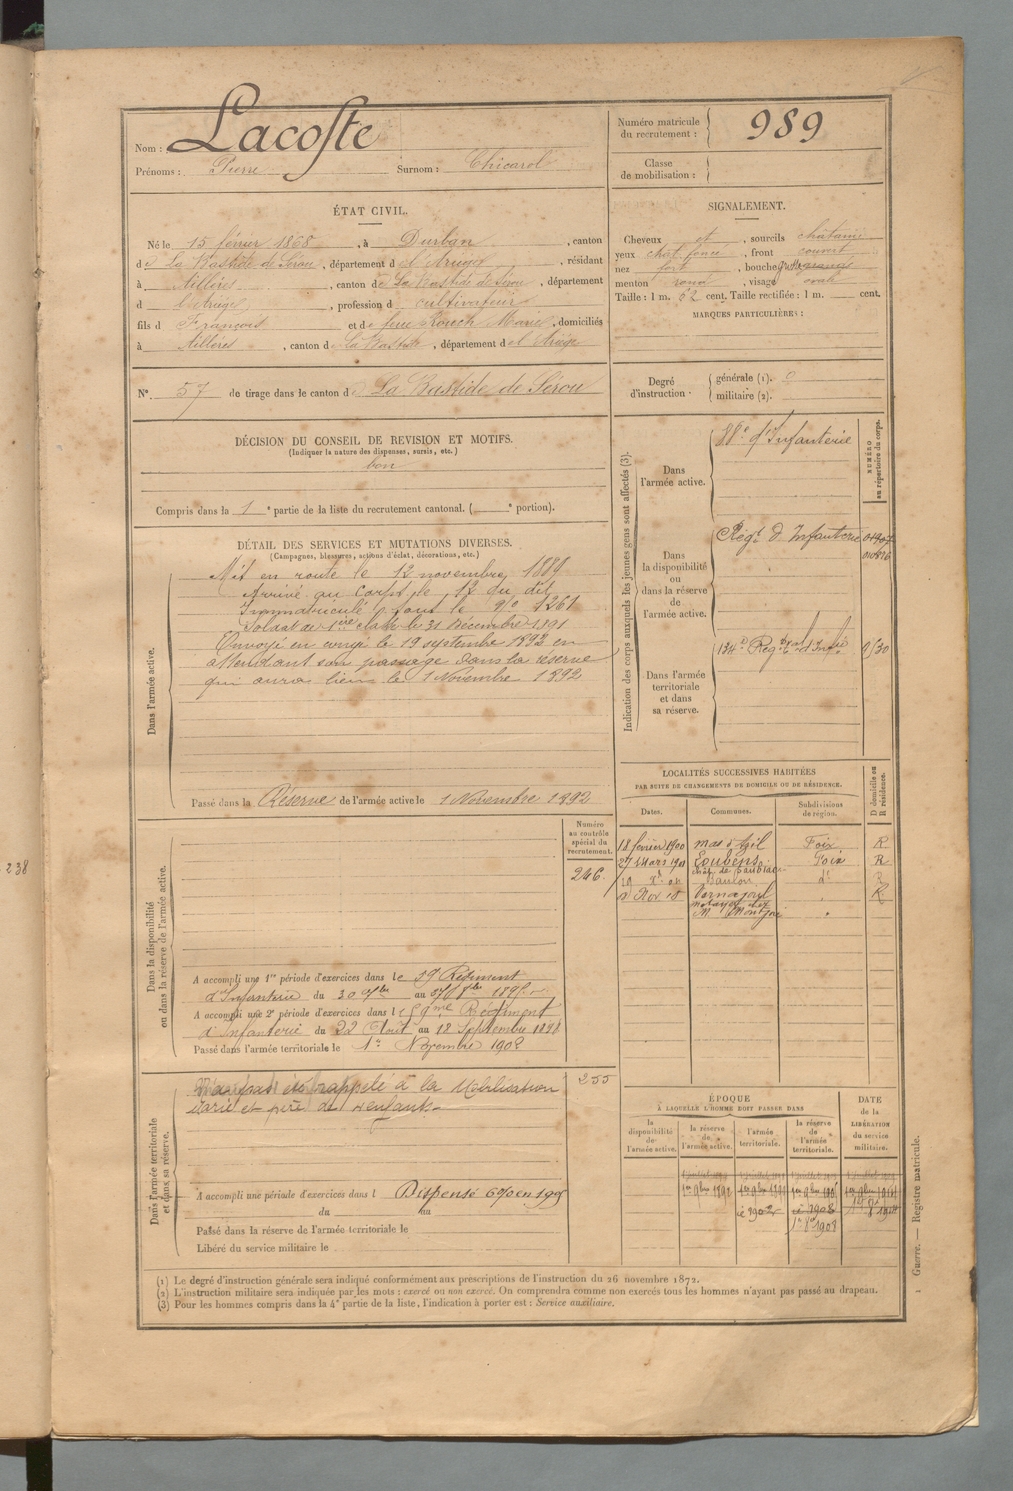 Nom : Lacoste
Prénoms : Pierre Surnom : Chicarol
Numéro matricule du recrutement : 989
Classe de mobilisation :
ÉTAT CIVIL.
Né le 15 février 1868, à Durban, canton
de La Bastide de Sérou, département de l'Ariège, résidant
à Aillères, canton de La Bastide de Sérou, département
d l'Ariège, profession de cultivateur
fils d François et de feue Rouch Marie, domiciliés
à Aillères, canton de La Bastide, département de l'Ariège
N° 57 de tirage dans le canton de La Bastide de Sérou
SIGNALEMENT.
Cheveux et, sourcils châtains
yeux chat. foncé, front couvert
nez fort, bouche grande
menton rond, visage ovale
Taille : 1 m. 62 cent. Taille rectifiée : 1 m. cent.
MARQUES PARTICULIÈRES :
Degré d'instruction : générale (1). 0
militaire (2).
DÉCISION DU CONSEIL DE REVISION ET MOTIFS.
(Indiquer la nature des dispenses, sursis, etc.)
bon
Compris dans la 1e partie de la liste du recrutement cantonal. ( e portion).
DÉTAIL DES SERVICES ET MUTATIONS DIVERSES.
(Campagnes, blessures, actions d'éclat, décorations, etc.)
Dans l'armée active.
Mis en route le 12 novembre 1889
Arrivé au Corps le 12 du dit
Immatriculé sous le n° 1261
Soldat de 1ère classe le 31 Décembre 1891
Envoyé en congé le 19 septembre 1892 en
attendant son passage dans la réserve
qui aura lieu le 1 Novembre 1892
Passé dans la Réserve de l'armée active le 1 Novembre 1892
Indication des corps auxquels les jeunes gens sont affectés (3).
NUMÉRO au répertoire du corps.
Dans l'armée active.
88e d'Infanterie
Dans la disponibilité ou dans la réserve de l'armée active.
Régt d'Infanterie
Dans l'armée territoriale et dans sa réserve.
134e Régt d'Infie
LOCALITÉS SUCCESSIVES HABITÉES
PAR SUITE DE CHANGEMENTS DE DOMICILE OU DE RÉSIDENCE.
D domicile ou R résidence.
Dates. Communes. Subdivisions de région.
18 février 1900 Mas d'Azil Foix R
27 Mars 1901 Loubens Foix R
Baulou do R
Nov. 18 Vernajoul R
Dans la disponibilité ou dans la réserve de l'armée active.
Numéro au contrôle spécial du recrutement.
246
A accompli une 1re période d'exercices dans le 59 Régiment
d'Infanterie du 30 au 1895
A accompli une 2e période d'exercices dans l 59me Régiment
d'Infanterie du 22 Août au 18 Septembre 1898
Passé dans l'armée territoriale le 1er Novembre 1902
Dans l'armée territoriale et dans sa réserve.
255
N'a pas été rappelé à la Mobilisation
marié et père de enfants
A accompli une période d'exercices dans l Dispensé en 1905
du au
Passé dans la réserve de l'armée territoriale le
Libéré du service militaire le
ÉPOQUE
À LAQUELLE L'HOMME DOIT PASSER DANS
DATE de la LIBÉRATION du service militaire.
la disponibilité de l'armée active. la réserve de l'armée active. l'armée territoriale. la réserve de l'armée territoriale.
1er 9bre 1892
1908
(1) Le degré d'instruction générale sera indiqué conformément aux prescriptions de l'instruction du 26 novembre 1872.
(2) L'instruction militaire sera indiquée par les mots : exercé ou non exercé. On comprendra comme non exercés tous les hommes n'ayant pas passé au drapeau.
(3) Pour les hommes compris dans la 4e partie de la liste, l'indication à porter est : Service auxiliaire.
Guerre. — Registre matricule.
238